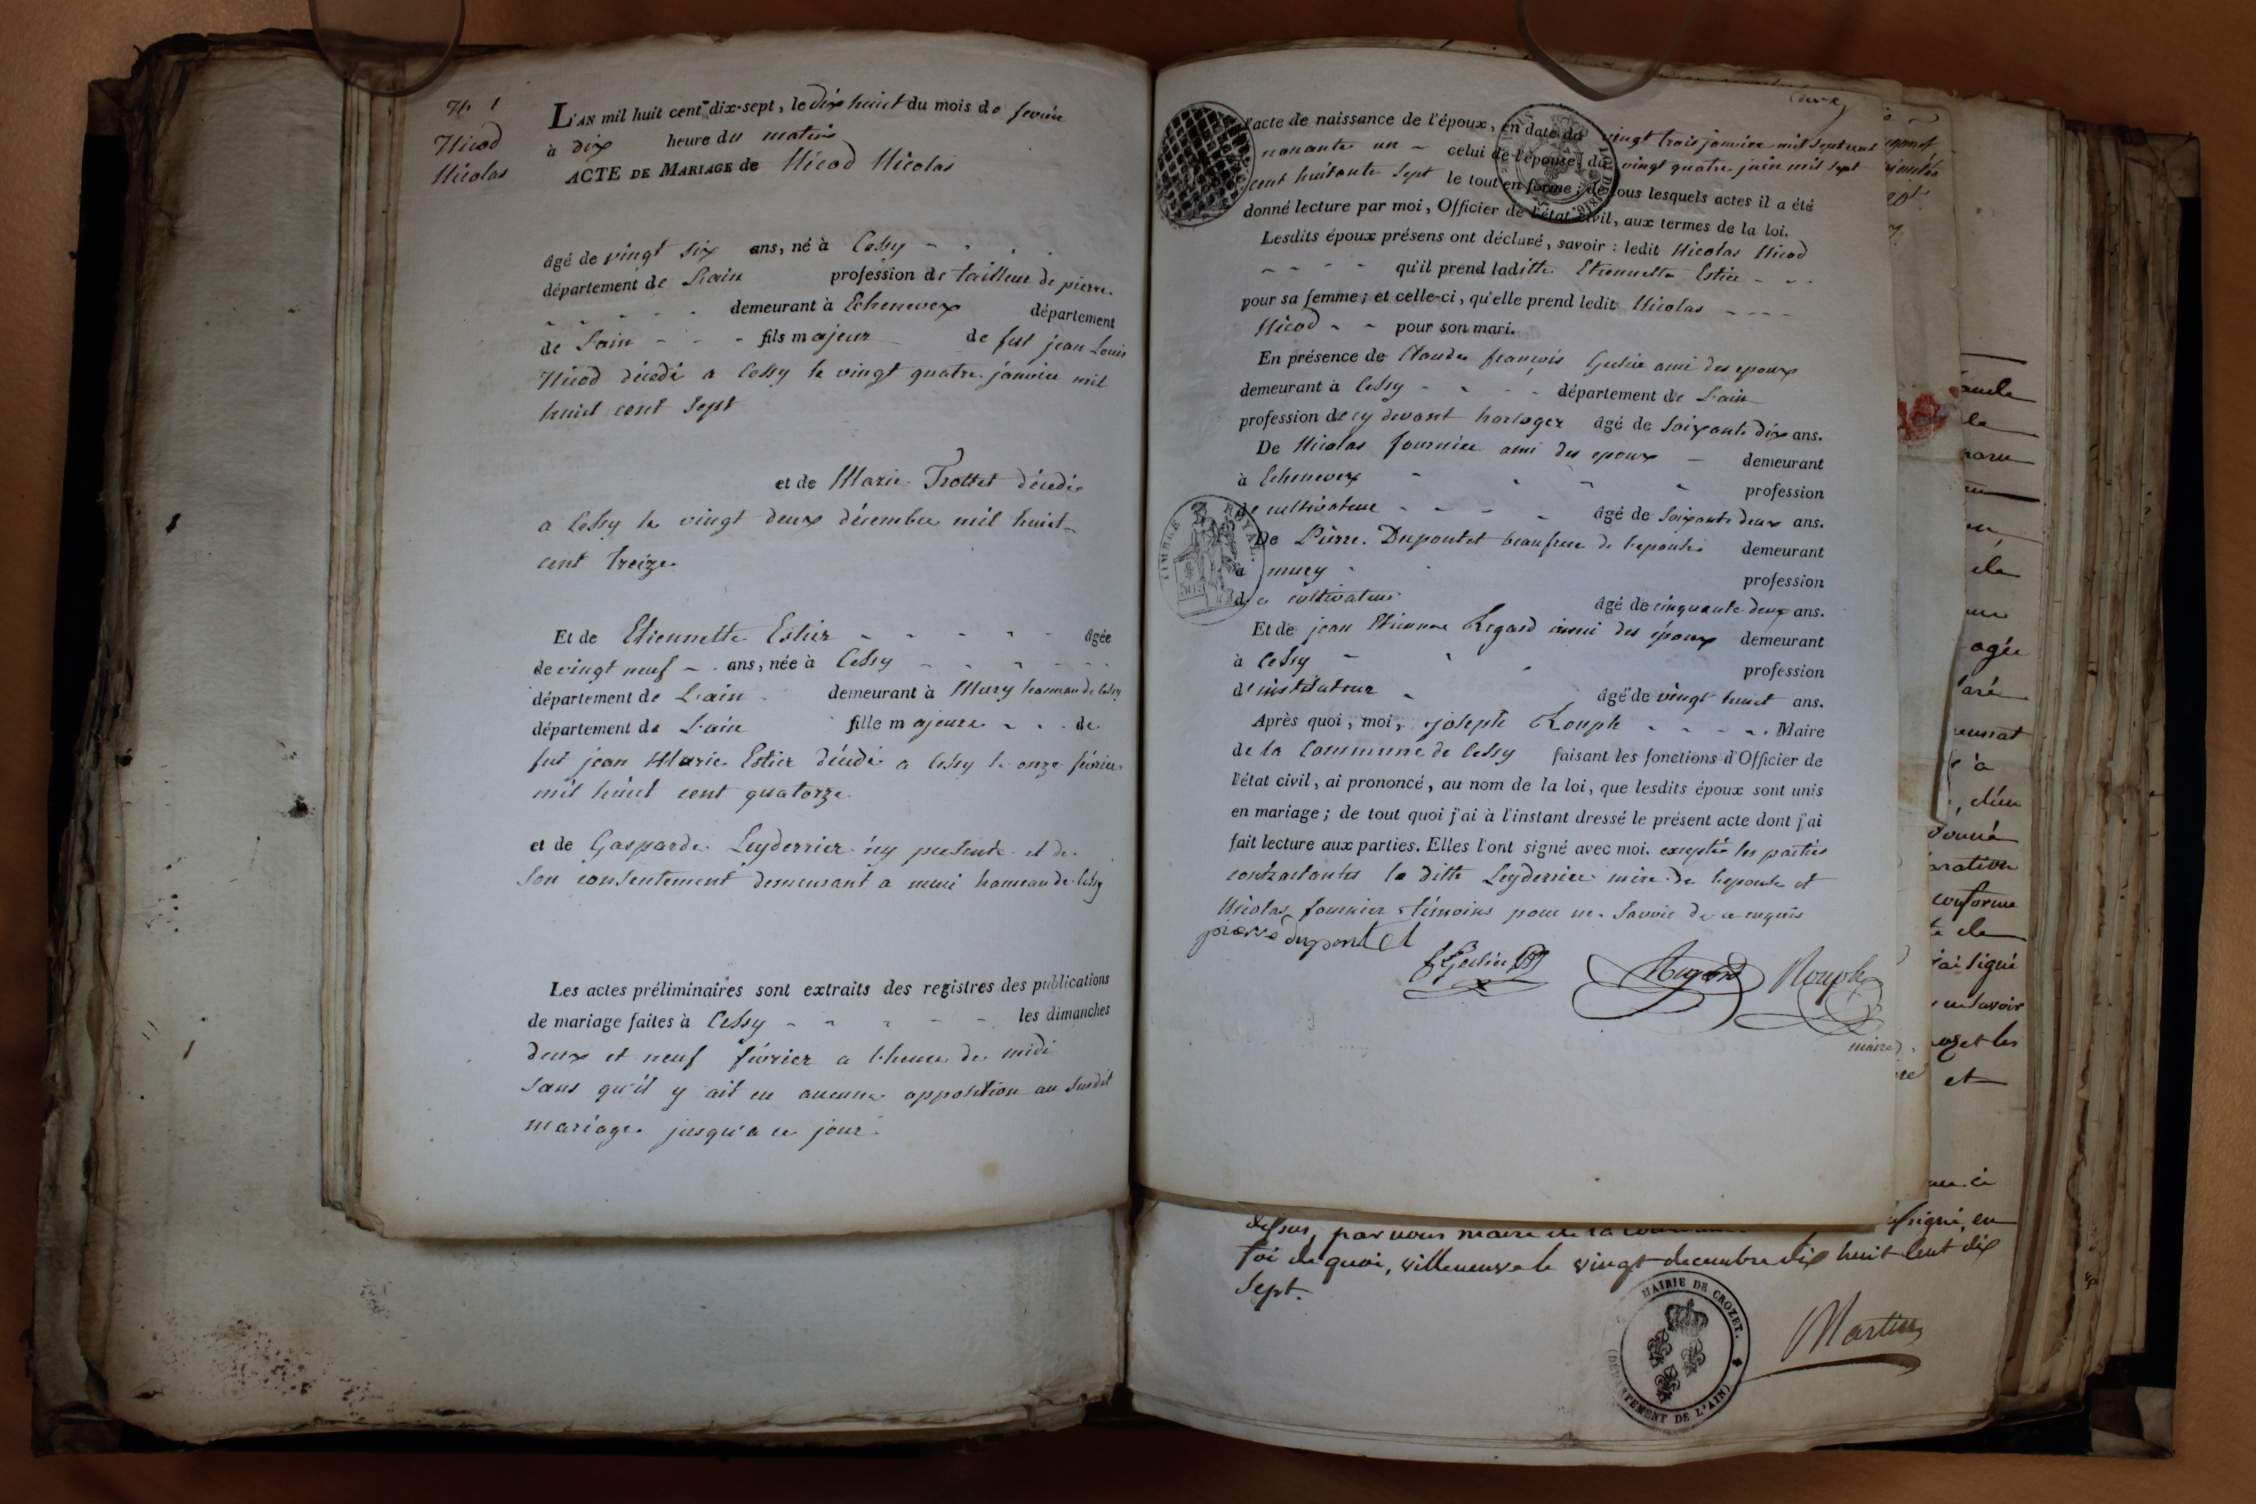 N. 1
Nicod
Nicolas
L'AN mil huit cent dix-sept, le dix huit du mois de fevrier
à dix heure du matin
ACTE DE MARIAGE de Nicod Nicolas
âgé de vingt six ans, né à Cessy
département de L'ain profession de tailleur de pierre.
demeurant à Echenevex département
de L'ain fils majeur de fut jean Louis
Nicod décedé a Cessy le vingt quatre janvier mil
huit cent sept
et de Marie Trottet décedée
a Cessy le vingt deux décembre mil huit
cent treize
Et de Etiennette Estier âgée
de vingt neuf ans, née à Cessy
département de L'ain demeurant à Mury hameau de Cessy
département de L'ain fille majeure de
fut jean Marie Estier décedé a Cessy le onze février
mil huit cent quatorze
et de Gasparde Leyderrier icy presente et de
son consentement demeurant a muri hameau de Cessy
Les actes préliminaires sont extraits des registres des publications
de mariage faites à Cessy les dimanches
deux et neuf février a l'heure de midi
sans qu'il y ait eu aucune opposition au susdit
mariage jusqu'a ce jour.
l'acte de naissance de l'époux, en date du vingt trois janvier mil sept cent
nonante un celui de l'épouse, du vingt quatre juin mil sept
cent huitante sept le tout en forme; de tous lesquels actes il a été
donné lecture par moi, Officier de l'état civil, aux termes de la loi.
Lesdits époux présens ont déclaré, savoir: ledit Nicolas Nicod
qu'il prend laditte Etiennette Estier
pour sa femme; et celle-ci, qu'elle prend ledit Nicolas
Nicod pour son mari.
En présence de Claude françois ami des epoux
demeurant à Cessy département de L'ain
profession de cy devant horloger âgé de soixante dix ans.
De Nicolas fournier ami des epoux demeurant
à Echenevex profession
de cultivateur âgé de soixante deux ans.
De Pierre Dupontet beaufrere de l'epouse demeurant
à mury profession
de cultivateur âgé de cinquante deux ans.
Et de jean Etienne Regard ami des époux demeurant
à Cessy profession
d'instituteur âgé de vingt huit ans.
Après quoi, moi, joseph Rouph Maire
de la Commune de Cessy faisant les fonctions d'Officier de
l'état civil, ai prononcé, au nom de la loi, que lesdits époux sont unis
en mariage; de tout quoi j'ai à l'instant dressé le présent acte dont j'ai
fait lecture aux parties. Elles l'ont signé avec moi. exceptés les parties
contractantes la ditte Leyderrier mère de l'epouse et
Nicolas fournier témoins pour ne savoir de ce requis
pierre dupontet
Regard Rouph
maire
TIMBRE ROYAL
dessus, par nous maire de la
foi de quoi, villeneuve le vingt decembre dix huit cent dix
sept.
MAIRIE DE CROZET.
(DÉPARTEMENT DE L'AIN)
Martin